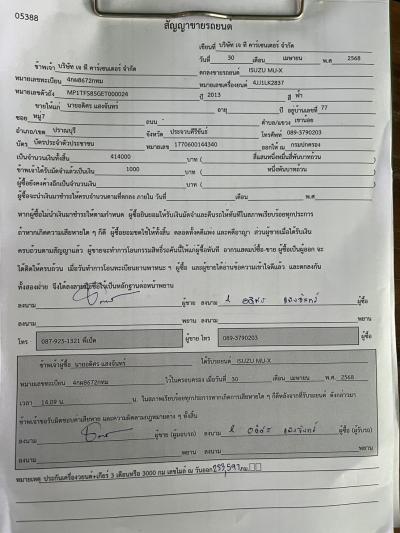 05388
สัญญาขายรถยนต์
เขียนที่ บริษัท เจ ที คาร์เซนเตอร์ จำกัด
วันที่ 30 เดือน เมษายน พ.ศ 2568
ข้าพเจ้า บริษัท เจ ที คาร์เซนเตอร์ จำกัด ตกลงขายรถยนต์ ISUZU MU-X
หมายเลขทะเบียน 4กฒ8672กทม หมายเลขเครื่องยนต์ 4JJ1LK2837
หมายเลขตัวถัง MP1TFS85GET000024 ปี 2013 สี ฟ้า
ขายให้แก่ นายอดิศร แสงจันทร์ อายุ ปี อยู่บ้านเลขที่ 77
ซอย หมู่7 ถนน - ตำบล/แขวง เขาน้อย
อำเภอ/เขต ปราณบุรี จังหวัด ประจวบคีรีขันธ์ โทรศัพท์ 089-3790203
บัตร บัตรประจำตัวประชาชน หมายเลข 1770600144340 ออกให้ ณ กรมปกครอง
เป็นจำนวนเงินทั้งสิ้น 414000 บาท ( สี่แสนหนึ่งหมื่นสี่พันบาทถ้วน
ข้าพเจ้าได้รับมัดจำแล้วเป็นเงิน 1000 บาท ( หนึ่งพันบาทถ้วน
ผู้ซื้อยังคงค้างอีกเป็นจำนวนเงิน บาท (
ผู้ซื้อจะนำเงินมาชำระให้ครบจำนวนตามที่ตกลง ภายใน วันที่ เดือน พ.ศ
หากผู้ซื้อไม่นำเงินมาชำระให้ตามกำหนด ผู้ซื้อยินยอมให้ริบเงินมัดจำและคืนรถให้ทันทีในสภาพเรียบร้อยทุกประการ
ถ้าหากเกิดความเสียหายใด ๆ ก็ดี ผู้ซื้อยอมชดใช้ให้ทั้งสิ้น ตลอดทั้งคดีแพ่ง และคดีอาญา ส่วนผู้ขายเมื่อได้รับเงิน
ครบถ้วนตามสัญญาแล้ว ผู้ขายจะทำการโอนกรรมสิทธิ์รถคันนี้ให้แก่ผู้ซื้อทันที อากรแสตมป์ซื้อ-ขาย ผู้ซื้อเป็นผู้ออก จะ
ได้ติดให้ครบถ้วน เมื่อวันทำการโอนทะเบียนยานพาหนะ ฯ ผู้ซื้อ และผู้ขายได้อ่านข้อความเข้าใจดีแล้ว และตกลงกัน
ทั้งสองฝ่าย จึงได้ลงลายมือชื่อไว้เป็นหลักฐานต่อหน้าพยาน
ลงนาม ผู้ขาย ลงนาม อดิศร แสงจันทร์ ผู้ซื้อ
ลงนาม พยาน ลงนาม พยาน
โทร 087-925-1321 พี่เป็ด ผู้ขาย โทร 089-3790203 ผู้ซื้อ
ข้าพเจ้าผู้ซื้อ นายอดิศร แสงจันทร์ ได้รับรถยนต์ ISUZU MU-X
หมายเลขทะเบียน 4กฒ8672กทม ไว้ในครอบครอง เมื่อวันที่ 30 เดือน เมษายน พ.ศ. 2568
เวลา 14.09 น. น. ในสภาพเรียบร้อยทุกประการหากเกิดการเสียหายใด ๆ ก็ดีหลังจากที่รับรถยนต์ ดังกล่าวมา
ข้าพเจ้าขอรับผิดชอบค่าเสียหาย และความผิดตามกฎหมายต่าง ๆ ทั้งสิ้น
ลงนาม ผู้ขาย (ผู้มอบรถ) ลงนาม อดิศร แสงจันทร์ ผู้ซื้อ (ผู้รับรถ)
ลงนาม พยาน ลงนาม พยาน
หมายเหตุ ประกันเครื่องยนต์+เกียร์ 3 เดือนหรือ 3000 กม เลขไมล์ ณ วันออก 253,597 กม.